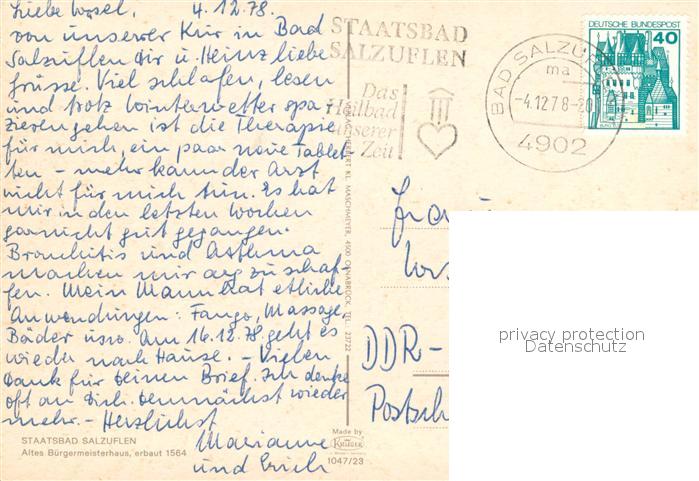 Liebe Ursel, 4.12.78.
von unserer Kur in Bad
Salzuflen dir u. Heinz liebe
Grüsse. Viel schlafen, lesen
und trotz Winterwetter spa
zierengehen ist die Therapie
für mich, ein paar neue Tablet
ten - mehr kann der Arzt
nicht für mich tun. Es hat
mir in den letzten Wochen
garnicht gut gegangen.
Bronchitis und Asthma
machen mir arg zu schaf
fen. Mein Mann hat etliche
Anwendungen: Fango, Massage,
Bäder usw. Am 16.12.78 geht es
wieder nach Hause. - Vielen
Dank für Deinen Brief. Ich denke
oft an Dich. Demnächst wieder
mehr. - Herzlichst
Marianne
und Erich
STAATSBAD SALZUFLEN
Altes Bürgermeisterhaus, erbaut 1564
STAATSBAD
SALZUFLEN
Das
Heilbad
unserer
Zeit
BAD SALZUF
ma
-4.12.78-20
4902
DEUTSCHE BUNDESPOST
40
KL. MASCHMEYER, 4500 OSNABRÜCK, TEL. 23722
Made by
KRÜGER
1047/23
Frau
DDR-
Postsch
privacy protection
Datenschutz